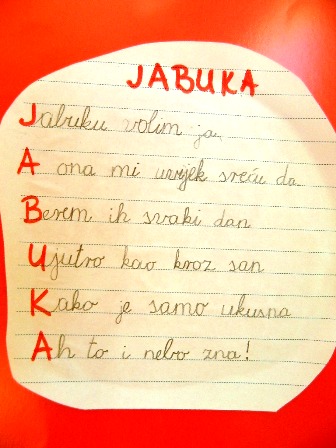 JABUKA
Jabuku volim ja
A ona mi uvijek sreću da
Berem ih svaki dan
Ujutro kao kroz san
Kako je samo ukusna
Ah to i nebo zna!